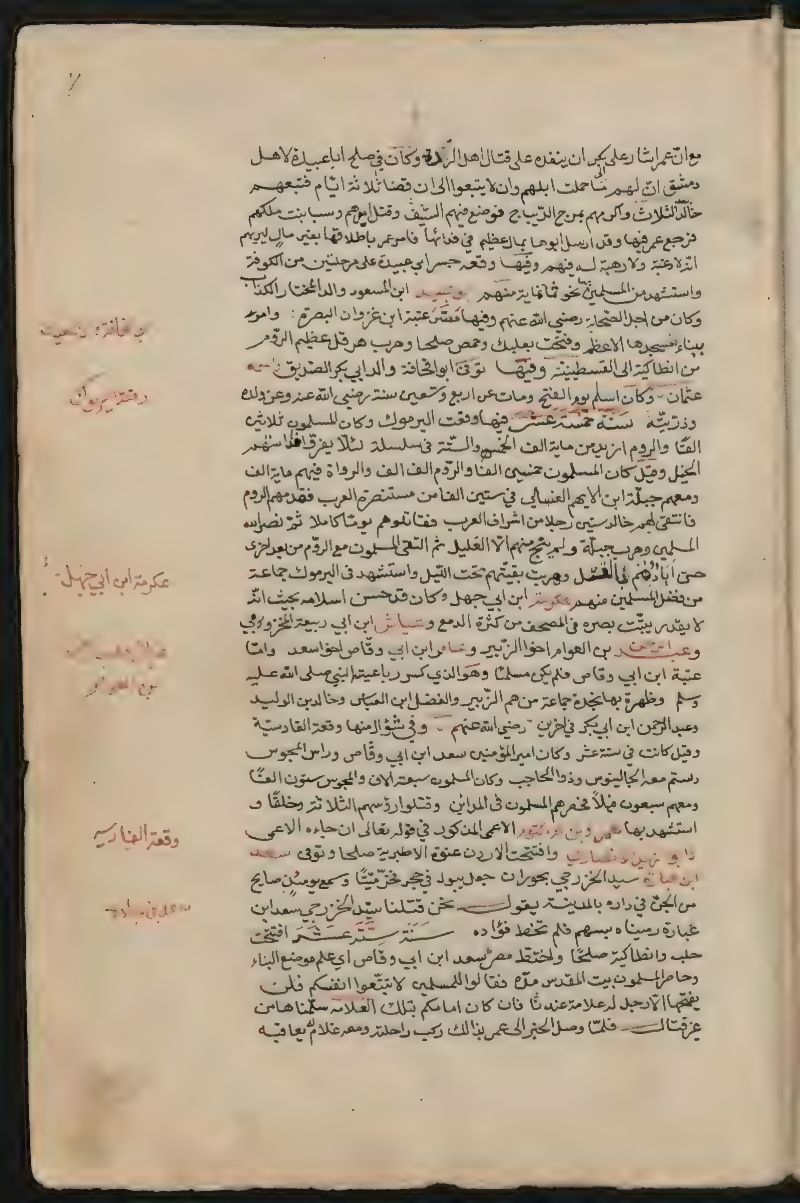 مع ان عمر اشار على ابى بكر ان ينفده على قتال اهل الردة وكان في صلح ابا عبيدة لاهل
دمشق ان لهم ما حملت ابلهم وان لا يتبعوا الى انقضا ثلاثة ايام فتبعهم
خالد الثلاث وادركهم بمرج الديباج فوضع فيهم السيف وقتل اميرهم وسبا بنت ملكهم
فرجع عمر فيها وقد ارسل ابوها بمال عظيم في فدائها فامر عمر باطلاقها بغير مال ليريهم
انه لا رغبة ولا رهبة له فيهم وفيها وقعه جسر ابي عبيدة على مرحلتين من الكوفة
واستشهد من المسلمين نحو ثمانماية منهم ابن المسعود والد المختار الكذاب
وكان من اجل الصحابة رضي الله عنهم وفيها مصر عتبة ابن غزوان البصرة وامر
ببناء مسجدها الاعظم وفتحت بعلبك وحمص صلحا وهرب هرقل عظيم الروم
من انطاكية الى القسطنطينية وفيها توفى ابو قحافة والد ابي بكر الصديق
عثمان وكان اسلم يوم الفتح ومات عن اربع وتسعين سنة رضي الله عنه وعن ولده
وذريته سنة خمسة عشر فيها وقعت اليرموك وكان المسلمون ثلاثين
الفا والروم ازيد من ماية الف الخمس والستة في سلسلة لئلا يفر
الخيل وقيل كان المسلمون خمسين الفا والروم الف الف والرواة فيهم ماية الف
ومعهم جبلة ابن الايهم الغساني في ستين الفا من مستنصرة العرب فقدمهم الروم
فانتقى لهم خالد ستين رجلا من اشراف العرب فقاتلوهم يوما كاملا ثم نصر الله
المسلمين وهرب جبلة ولم ينج منهم الا القليل ثم التقى المسلمون مع الروم من بعد اخرى
حتى ابادوهم بالقتل وهربت بقيتهم تحت الليل واستشهد في اليرموك جماعة
من فضلا المسلمين منهم عكرمة ابن ابي جهل وكان قد حسن اسلامه بحيث انه
لا يقدر يثبت بصره في المصحف من كثرة الدمع وعياش ابن ابي ربيعة المخزومي
وعبد بن العوام اخو الزبير وعامر ابن ابي وقاص اخو سعد واما
عتبة ابن ابي وقاص فلم يكن مسلما وهو الذي كسر رباعية النبي صلى الله عليه
وسلم وظهرة بها نجدة جماعة منهم الزبير والفضل ابن العباس وخالد بن الوليد
وعبد الرحمن ابن ابي بكر في اخرين رضي الله عنهم وفي شؤال منها وقعة القادسية
وقيل كانت في سنة عشر وكان امير المؤمنين سعد ابن ابي وقاص وراس المجوس
رستم معه الجالينوس وذو الحاجب وكان المسلمون سبعة الاف والمجوس ستون الفا
ومعهم سبعون فيلا فحصرهم المسلمون في المدائن وقتلوا رؤسهم الثلاثة وخلقا و
استشهد بها عمرو بن ام مكتوم الاعمى المذكور في قوله تعالى ان جاءه الاعمى
وافتتحت الاردن عنوة الا طبرية صلحا وتوفى سعد
ابن عبادة سيد الخزرجي بحوران جعل يبول في جحر فخر ميتا وسمع يومئذ صايح
من الجن في داره بالمدينة يقول نحن قتلنا سيد الخزرجي سعد ابن
عبارة رميناه بسهم فلم تخط فؤاده سنة ستة عشر افتتحت
حلب وانطاكية صلحا واختط مصر سعد ابن ابي وقاص اي علم موضع البناء
وحاصر المسلمون بيت المقدس مدة فقالوا للمسلمين لا تتعبوا انفسكم فلن
يفتحها الا رجل له علامة عندنا فان كان امامكم بتلك العلامة سلمناها من
غير قتال فلما وصل الخبر الى عمر بذالك ركب راحلته ومعه غلام له يعاقبه
وقعة اليرموك
عكرمة ابن ابي جهل
بن العوام
وقعة القادسيه
سعد بن عبادة